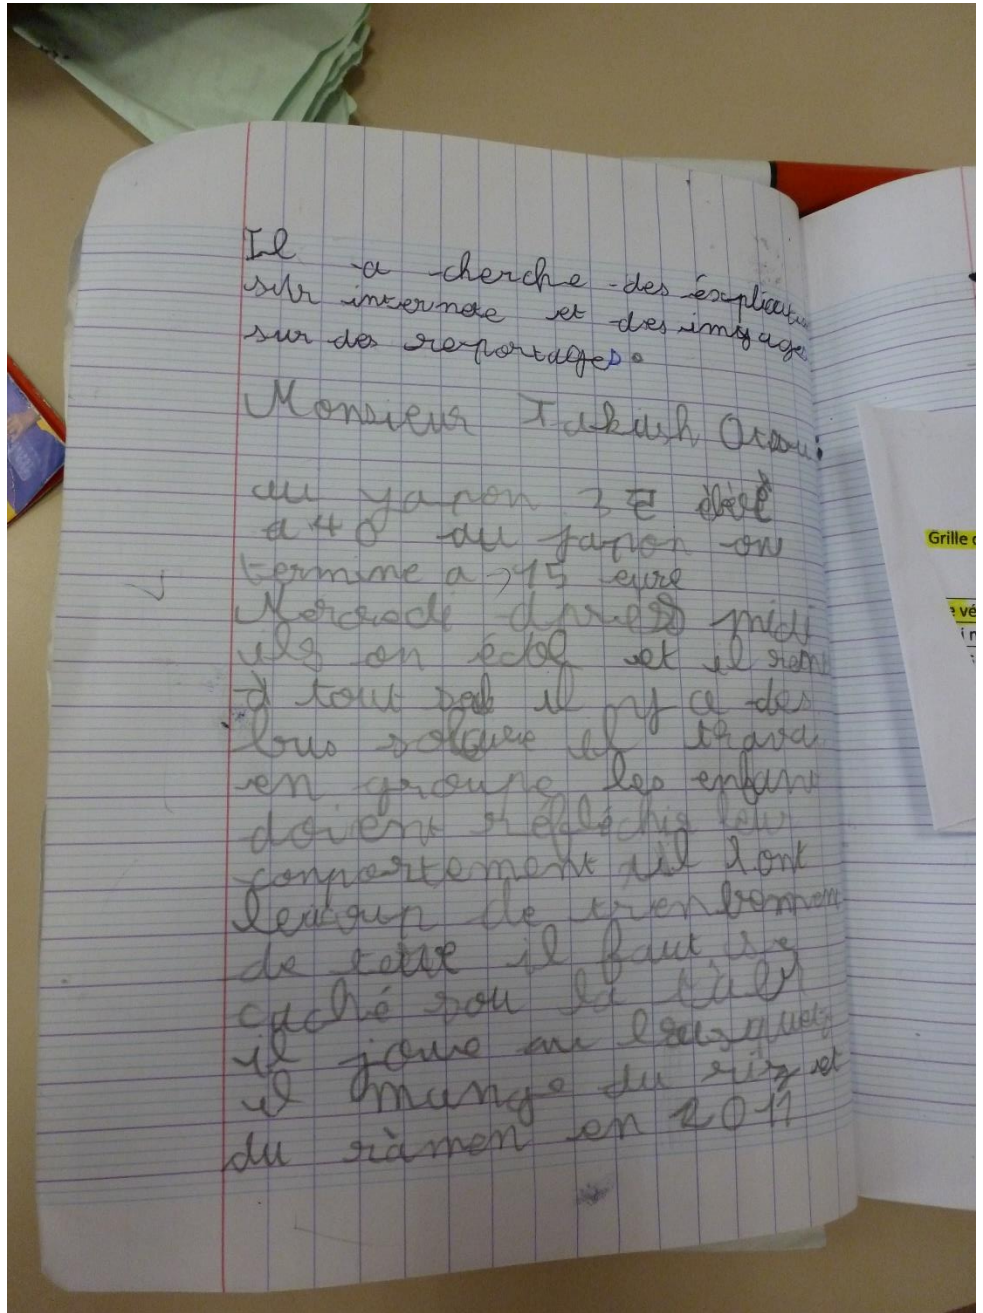 Il a cherche des éxplicati
sur internete et des imyages
sur des reportages.
Monsieur Takush Otsou:
au yapon 3 élève
a 40 au japon on
termine a 15 eure
Mercredi apres midi
ils on école et il rent
à tout seul il y a des
bus et trava
en groupe les enfant
doivent réfléchir leur
comportement il
de
de terre il faut se
caché sou la table
il joue au basquet
il mange du riz et
du ràmen en 2011
Grille